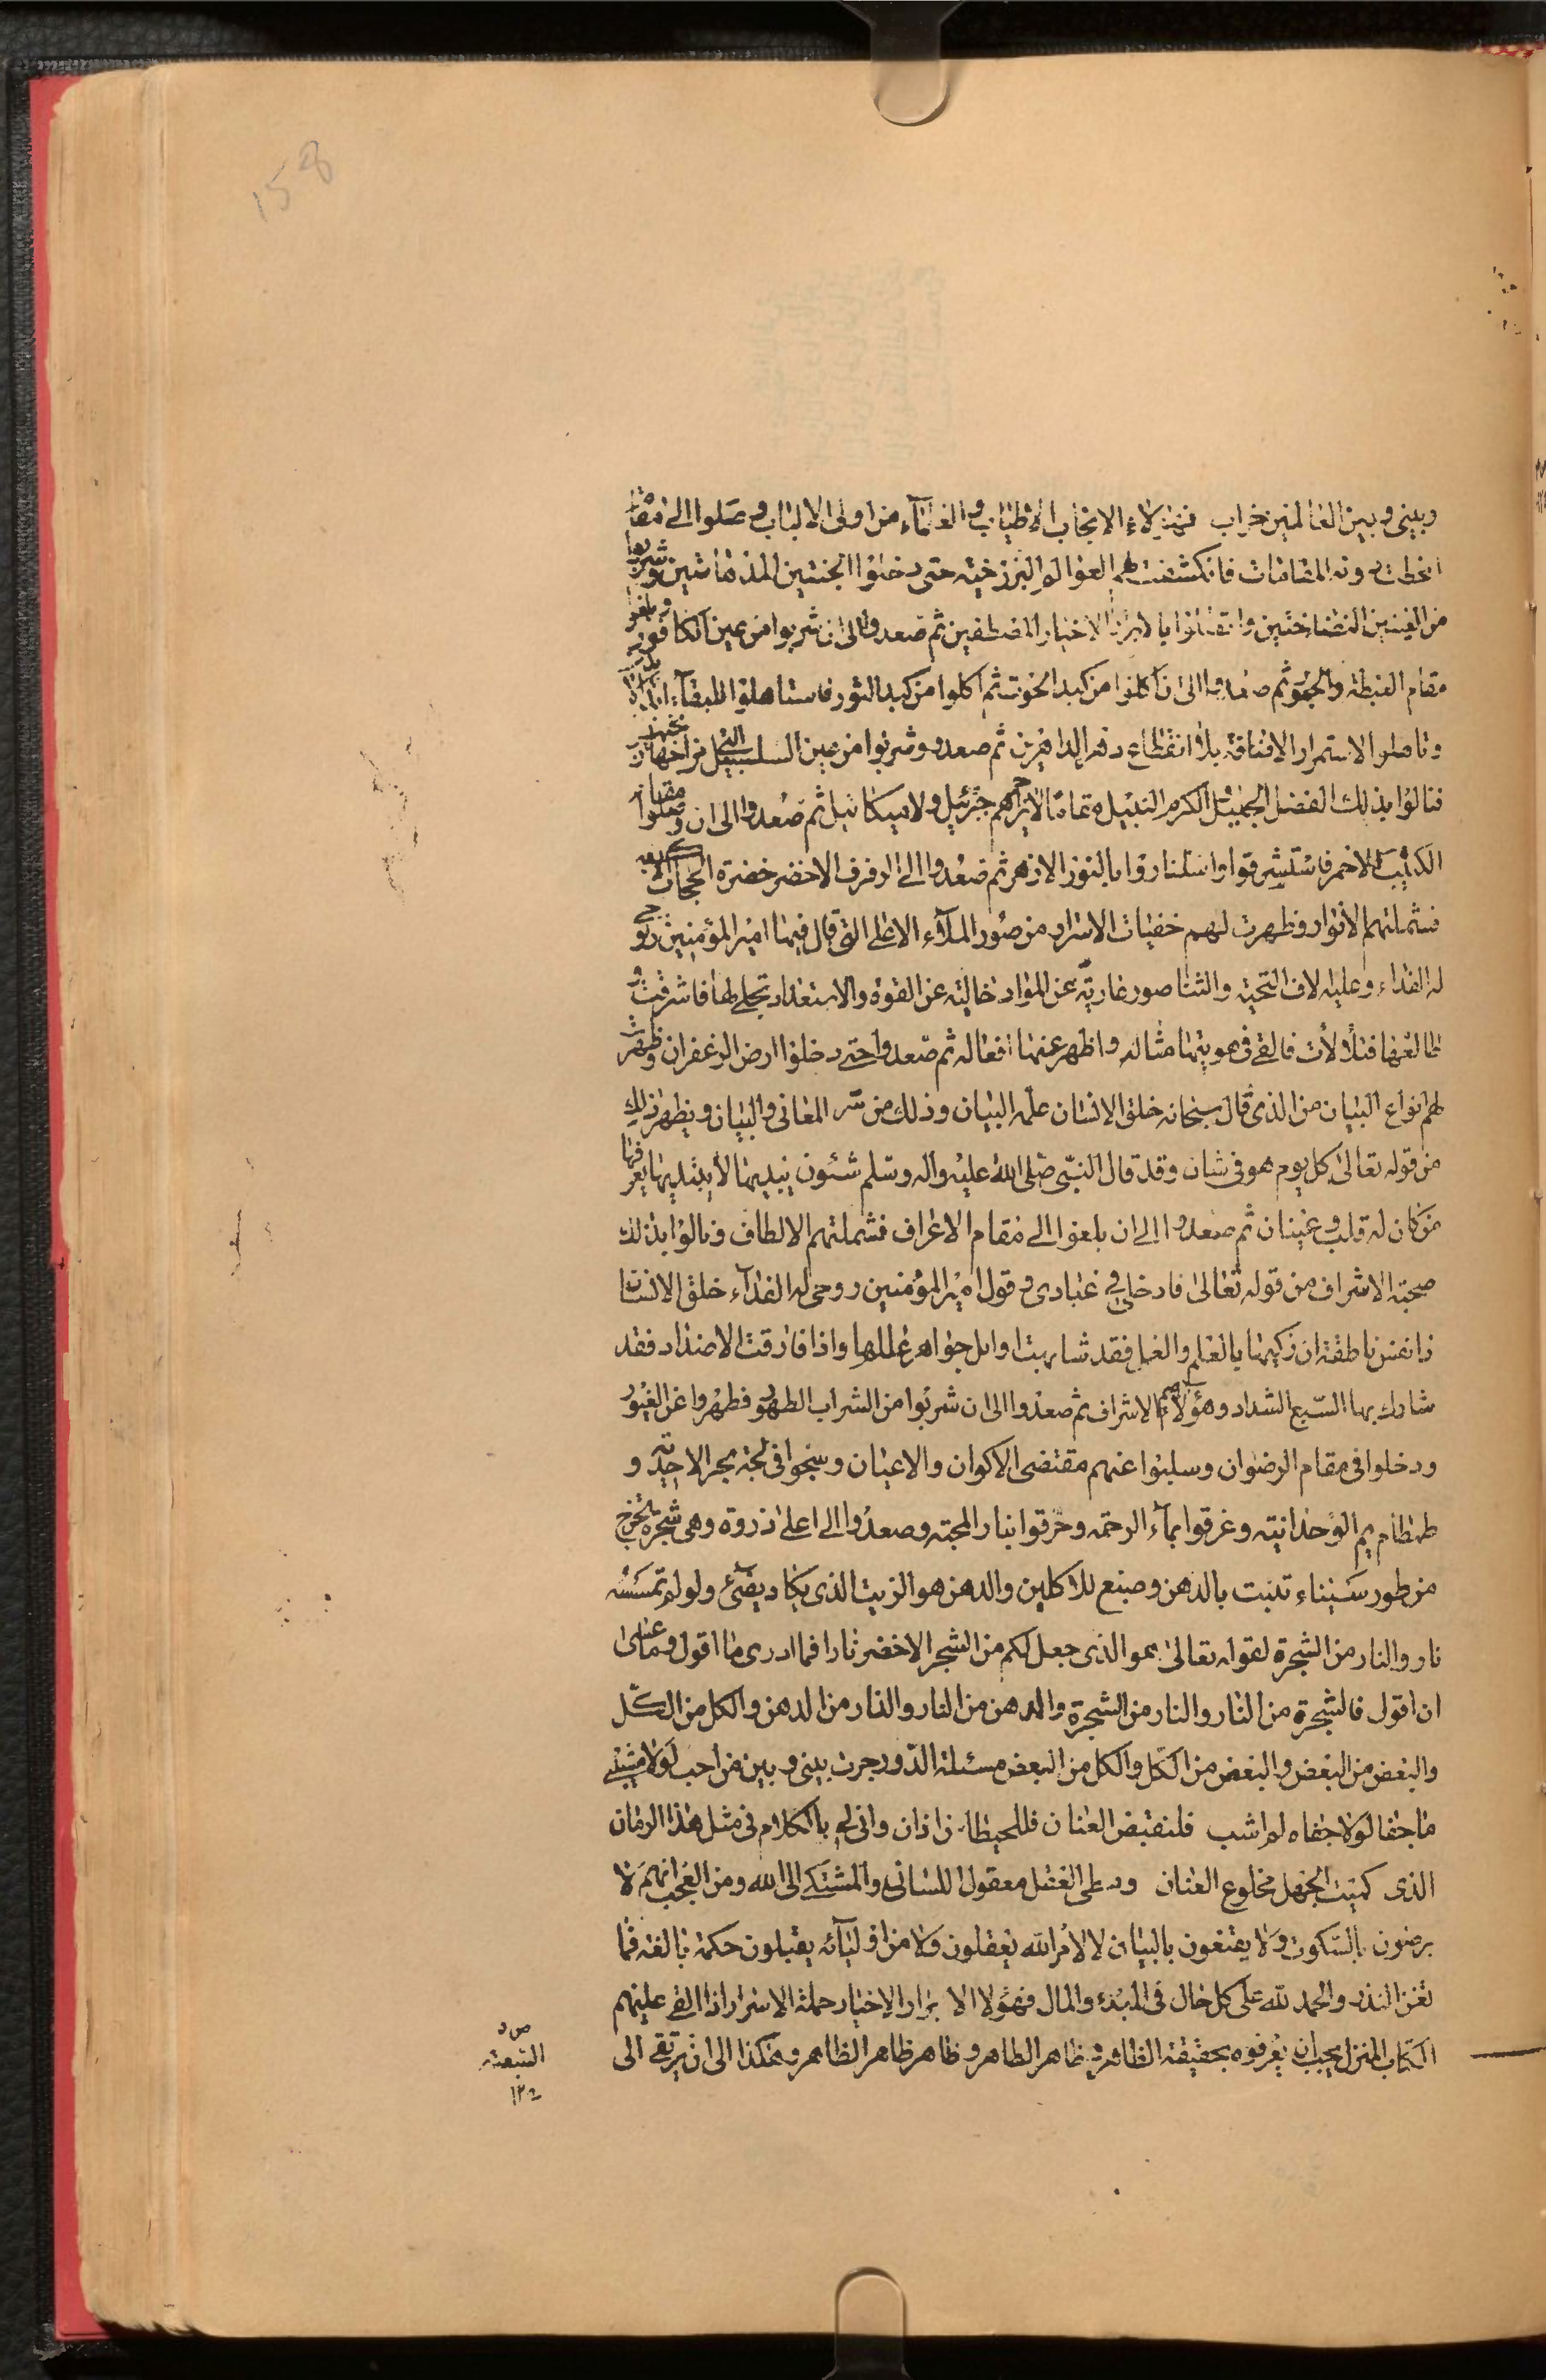 158
وبيني وبين العالمين خراب فهؤلاء الانجاب الاطياب والعلماء من اولى الالباب وصلوا الى مقام
انحطت دونه المقامات فانكشفت لهم العوالم البرزخيه حتى دخلوا الجنتين المدهامتين وشربوا
من العينين النضاختين واتصلوا بالابرار الاخيار المصطفين ثم صعدوا الى ان شربوا من عين الكافور وبلغوا
مقام الغبطة والحبور ثم صعدوا الى ان اكلوا من كبد الحوت ثم اكلوا من كبد الثور فاستاهلوا للبقاء
وتاهلوا الاستمرار الافاقة بلا انقطاع دهر الداهرين ثم صعدوا وشربوا من عين السلسبيل
فنالوا بذلك الفضل الجميل والكرم النبيل ثم صعدوا الى ان وصلوا مقام
الكثيب الاحمر فاستشرقوا واستناروا بالنور الازهر ثم صعدوا الى الرفرف الاخضر خضرة
فشملتهم الانوار وظهرت لهم خفيات الاسرار من صور الملاء الاعلى التي قال فيها امير المؤمنين روحي
له الفداء وعليه الاف التحيه والثنا صور عارية عن المواد خالية عن القوة والاستعداد تجلى لها فاشرقت و
طالعها فتلألأت فالقى في هويتها مثاله واظهر عنها افعاله ثم صعدوا حتى دخلوا ارض الزعفران وظهرت
لهم انواع البيان من الذي قال سبحانه خلق الانسان علمه البيان وذلك من سر المعاني والبيان ويظهر ذلك
من قوله تعالى كل يوم هو في شان وقد قال النبي صلى الله عليه واله وسلم شئون يبديها لا يبتديها يعرفها
من كان له قلب وعينان ثم صعدوا الى ان بلغوا الى مقام الاعراف فشملتهم الالطاف ونالوا بذلك
صحبة الاشراف من قوله تعالى فادخلي في عبادي وقول امير المؤمنين روحي له الفداء خلق الانسان
ذا نفس ناطقة ان زكيها بالعلم والعمل فقد شابهت اوايل جواهر عللها واذا فارقت الاضداد فقد
شارك بها السبع الشداد وهؤلاء هم الاشراف ثم صعدوا الى ان شربوا من الشراب الطهور فطهروا عن الغيور
ودخلوا في مقام الرضوان وسلبوا عنهم مقتضى الاكوان والاعيان وسبحوا في لجة بحر الاحدية و
طمطام يم الوحدانية وغرقوا بماء الرحمه وحرقوا بنار المحبته وصعدوا الى اعلى ذروة وهي شجرة تخرج
من طور سيناء تنبت بالدهن وصبغ للاكلين والدهن هو الزيت الذي يكاد يضيئ ولو لم تمسسه
نار والنار من الشجرة لقوله تعالى هو الذي جعل لكم من الشجر الاخضر نارا فما ادرى ما اقول وما عسى
ان اقول فالشجرة من النار والنار من الشجرة والدهن من النار والنار من الدهن والكل من الكل
والبعض من البعض والبعض من الكل والكل من البعض مسئلة الدور جرت بيني وبين من احب لولا مشيبى
ما جفا لولا جفاه لم اشب فلنقبض العنان فللحيطان اذان وانى لي بالكلام في مثل هذا الزمان
الذي كميت الجهل مخلوع العنان وطى العقل معقول اللسان والمشتكى الى الله ومن العجب انهم لا
يرضون بالسكوت ولا يقنعون بالبيان لا لامر الله يعقلون ولا من اوليائه يقبلون حكمة بالغة فما
تغن النذر والحمد لله على كل حال في المبدء والمال فهؤلاء الابرار الاخيار حملة الاسرار اذا القى عليهم
الكتاب المنزل يجب ان يعرفوه بحقيقة الظاهر وظاهر الظاهر وظاهر ظاهر الظاهر وهكذا الى ان يرتقى الى